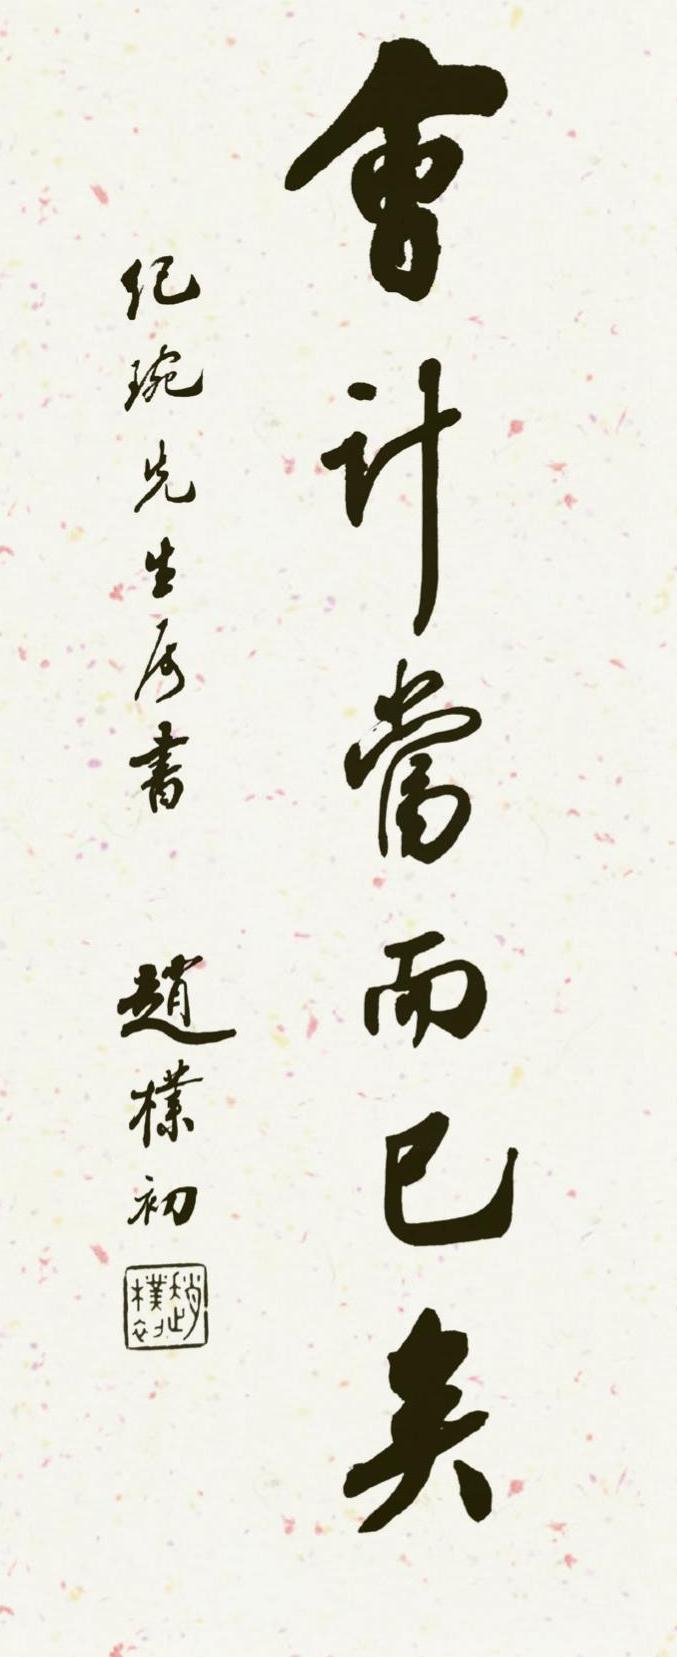 會計當而已矣
纪琬先生属書
趙樸初
趙樸初